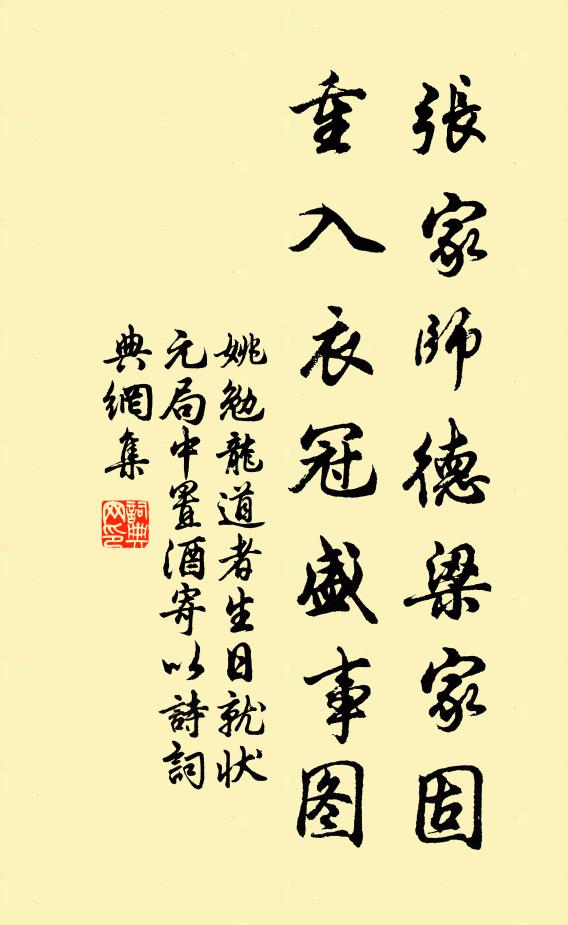 張家師德梁家固
重入衣冠盛事图
姚勉龍道者生日就状
元局中置酒寄以詩詞
典網集
詞典
网印